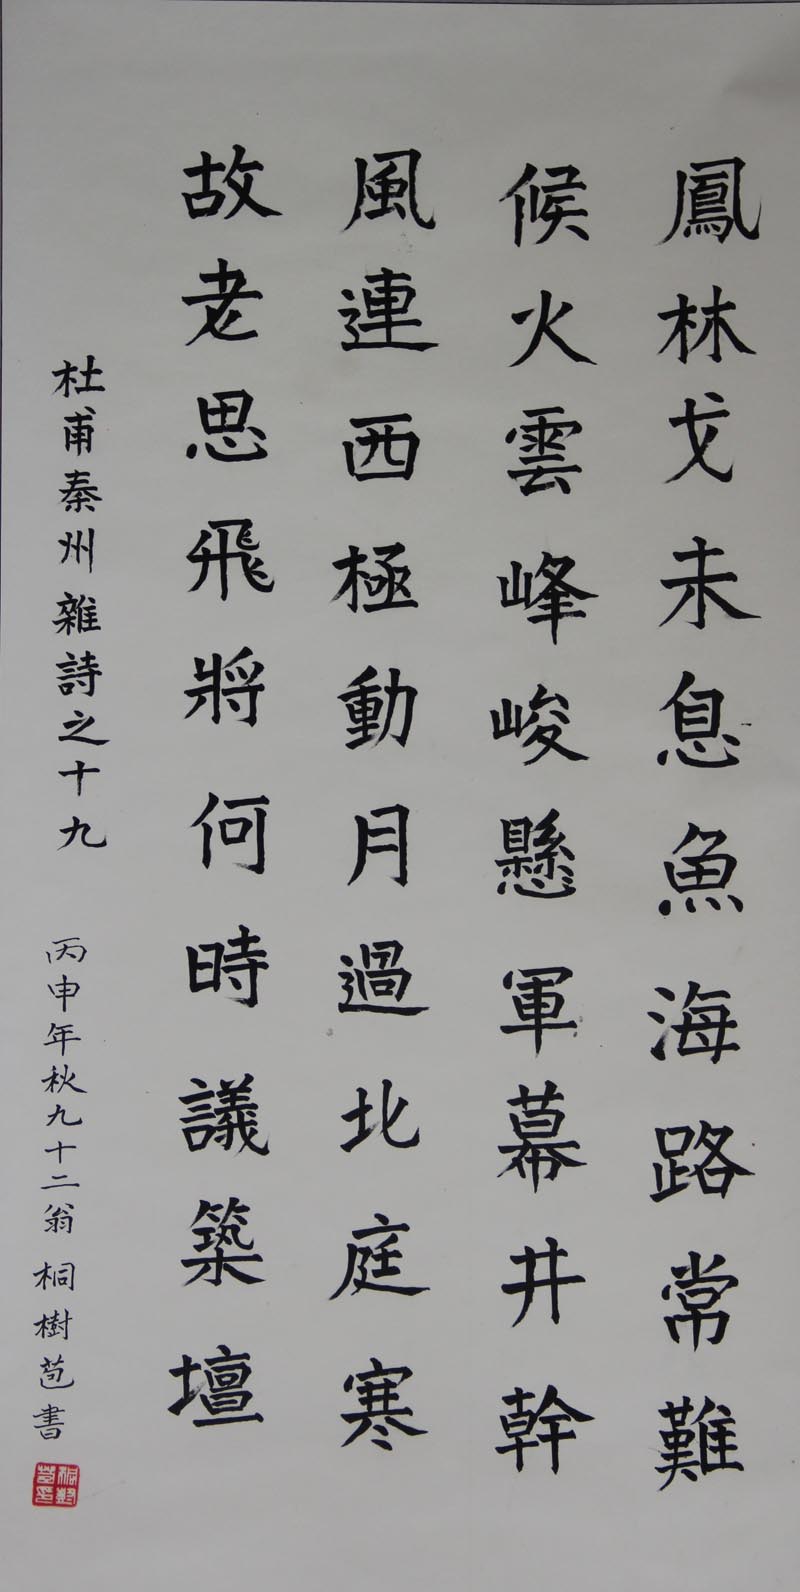 鳳林戈未息魚海路常難
候火雲峰峻懸軍幕井幹
風連西極動月過北庭寒
故老思飛將何時議築壇
杜甫秦州雜詩之十九 丙申年秋九十二翁 桐樹苞書